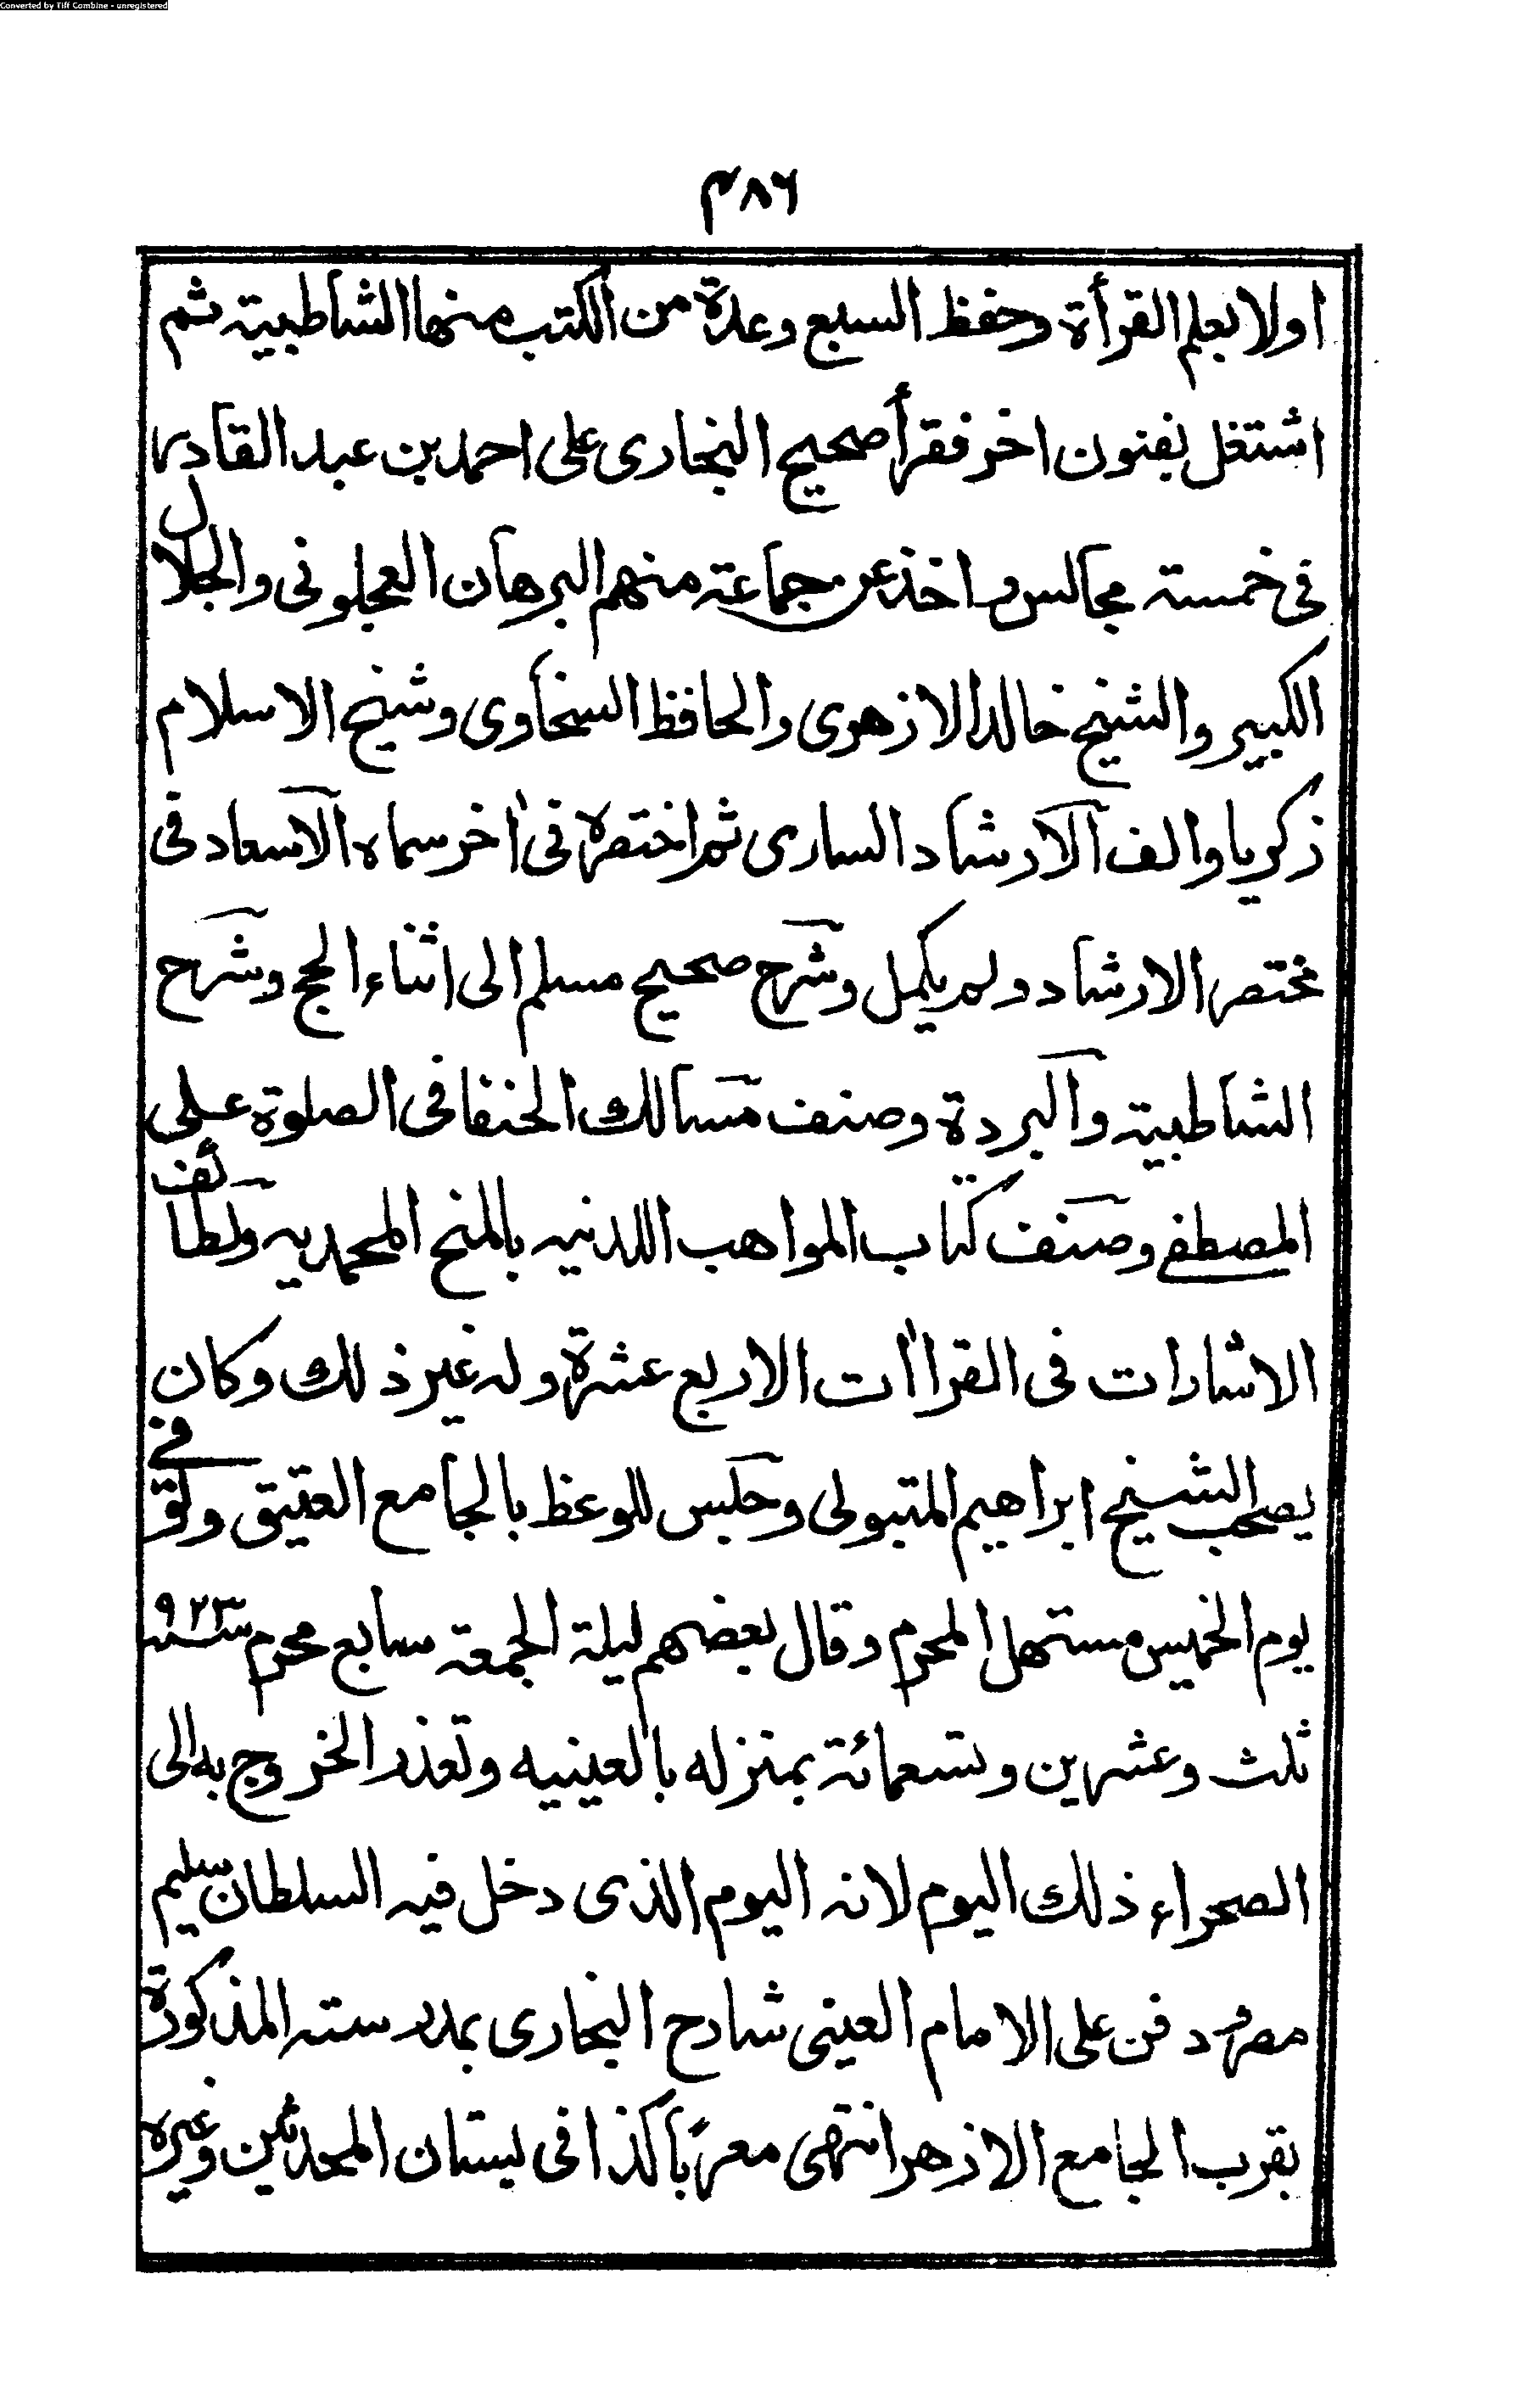 Converted by Tiff Combine - unregistered
۴۸۶
اولا بعلم القرأة وحفظ السبع وعدة من الكتب منها الشاطبية ثم
اشتغل بفنون اخر فقرأ صحيح البخارى على احمد بن عبد القادر
فى خمسة مجالس واخذ عن جماعة منهم البرهان العجلونى والجلال
الكبير والشيخ خالد الازهرى والحافظ السخاوى وشيخ الاسلام
زكريا والف الارشاد السارى ثم اختصره فى اخر سماه الاسعاد فى
مختصر الارشاد ولم يكمل وشرح صحيح مسلم الى اثناء الحج وشرح
الشاطبية والبردة وصنف مسالك الحنفا فى الصلوة على
المصطفى وصنف كتاب المواهب اللدنيه بالمنح المحمديه ولطائف
الاشارات فى القراأت الاربع عشرة وله غير ذلك وكان
يصحب الشيخ ابراهيم المتبولى وجلس للوعظ بالجامع العتيق وتوفى
يوم الخميس مستهل المحرم وقال بعضهم ليلة الجمعة سابع محرم سنه ۹۲۳
ثلث وعشرين وتسعمائة بمنزله بالعينيه وتعذر الخروج به الى
الصحراء ذلك اليوم لانه اليوم الذى دخل فيه السلطان سليم
مصر ودفن على الامام العينى شارح البخارى بمدرسته المذكورة
بقرب الجامع الازهر انتهى معربا كذا فى بستان المحدثين وغيره